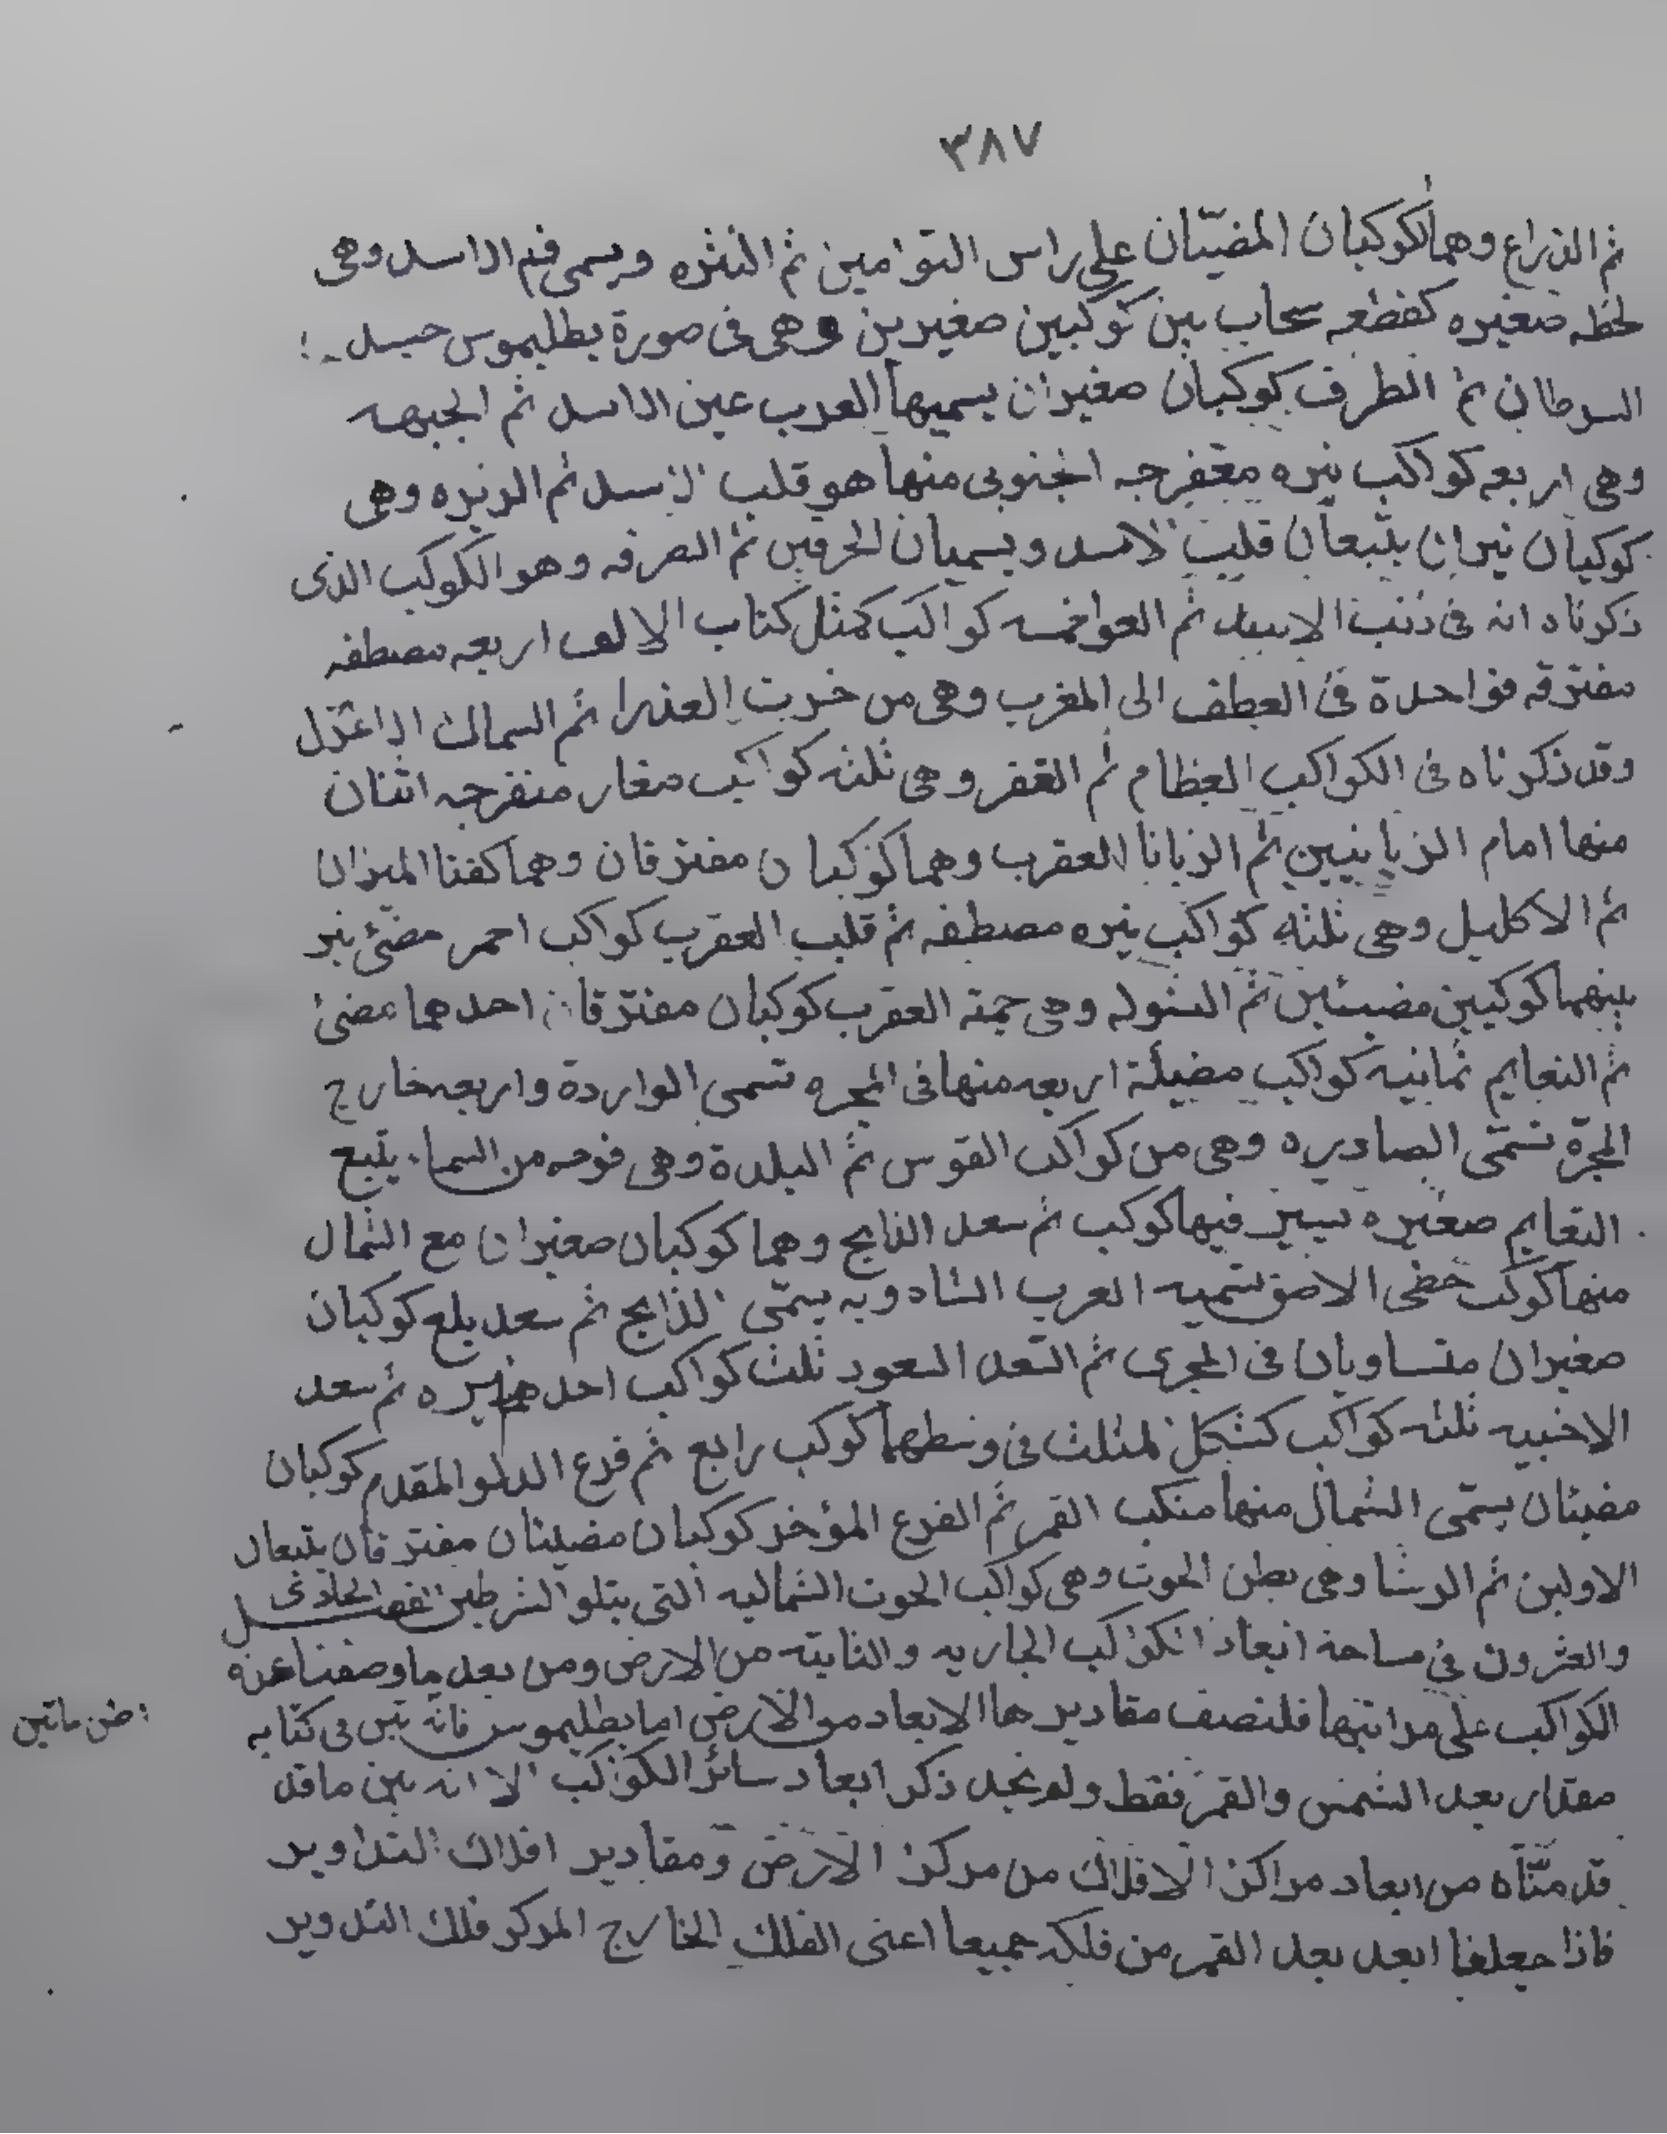 ٣٨٧
ثم الذراع وهما الكوكبان المضيّان على راس التوامين ثم النثره ويسمى فم الاسد وهى
لطخه صغيره كقطعه سحاب بين كوكبين صغيرين وهى فى صورة بطليموس
السرطان ثم الطرف كوكبان صغيران يسميها العرب عين الاسد ثم الجبهه
وهى اربعه كواكب نيره الجنوبى منها هو قلب الاسد ثم الزبره وهى
كوكبان نيران يتبعان قلب الاسد ويسميان الخرقين ثم الصرفه وهو الكوكب الذى
ذكرناه انه فى ذنب الاسد ثم العوا خمسه كواكب كمثل كتاب الالف اربعه مصطفه
مفترقه فواحدة فى العطف الى المغرب وهى من العذرا ثم السماك الاعزل
وقد ذكرناه فى الكواكب العظام ثم الغفر وهى ثلثه كواكب صغار منفرجه اثنان
منها امام الزبانيين ثم الزبانا العقرب وهما كوكبان مفترقان وهما كفتا الميزان
ثم الاكليل وهى ثلثه كواكب نيره مصطفه ثم قلب العقرب كواكب احمر مضئ نير
بينهما كوكبين مضيئين ثم الشوله وهى حمة العقرب كوكبان مفترقان احدهما مضئ
ثم النعايم ثمانيه كواكب مضيئة اربعه منها فى المجره تسمى الواردة واربعه خارج
المجرّة تسمّى الصادره وهى من كواكب القوس ثم البلدة وهى فرجه من السماء يتبع
النعايم صغيره فيها كوكب ثم سعد الذابح وهما كوكبان صغيران مع الشمال
منها كوكب خفى تسميه العرب الشاه وبه يسمّى الذابح ثم سعد بلع كوكبان
صغيران متساويان فى المجرى ثم السعد السعود ثلث كواكب احدها نيره ثم سعد
الاخبيه ثلثه كواكب كشكل المثلث فى وسطها كوكب رابع ثم فرع الدلو المقدم كوكبان
مضيئان يسمّى الشمال منها منكب القمر ثم الفرع المؤخر كوكبان مضيئان مفترقان يتبعان
الاولين ثم الرشا وهى بطن الحوت وهى كواكب الحوت الشماليه التى يتلو الشرطين الفصل الحادى
والعشرون فى مساحة ابعاد الكواكب الجاريه والثابته من الارض ومن بعد ما وصفنا عن
الكواكب على مراتبها فلنصف مقاديرها الابعاد من الارض اما بطليموس فانه بيّن فى كتابه
مقدار بعد الشمس والقمر فقط ولم نجد ذكر ابعاد سائر الكواكب الا انه بين ما قد
من ابعاد مراكز الافلاك من مركز الارض ومقادير افلاك التداوير
فاذا جعلنا ابعد بعد القمر من فلكه جميعا اعنى الفلك الخارج المركز فلك التدوير